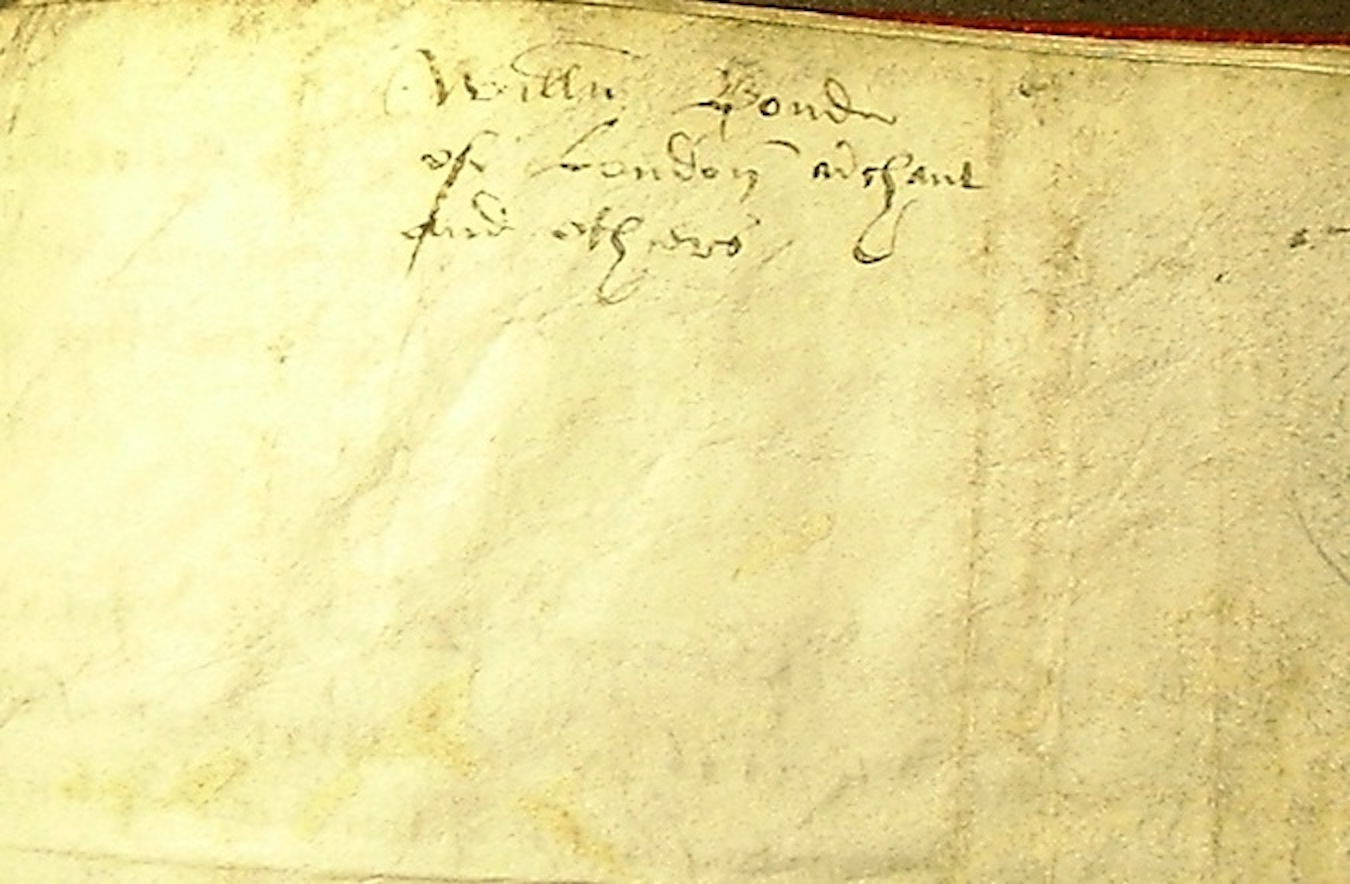 Willm Bonde
of London mrchant
and others